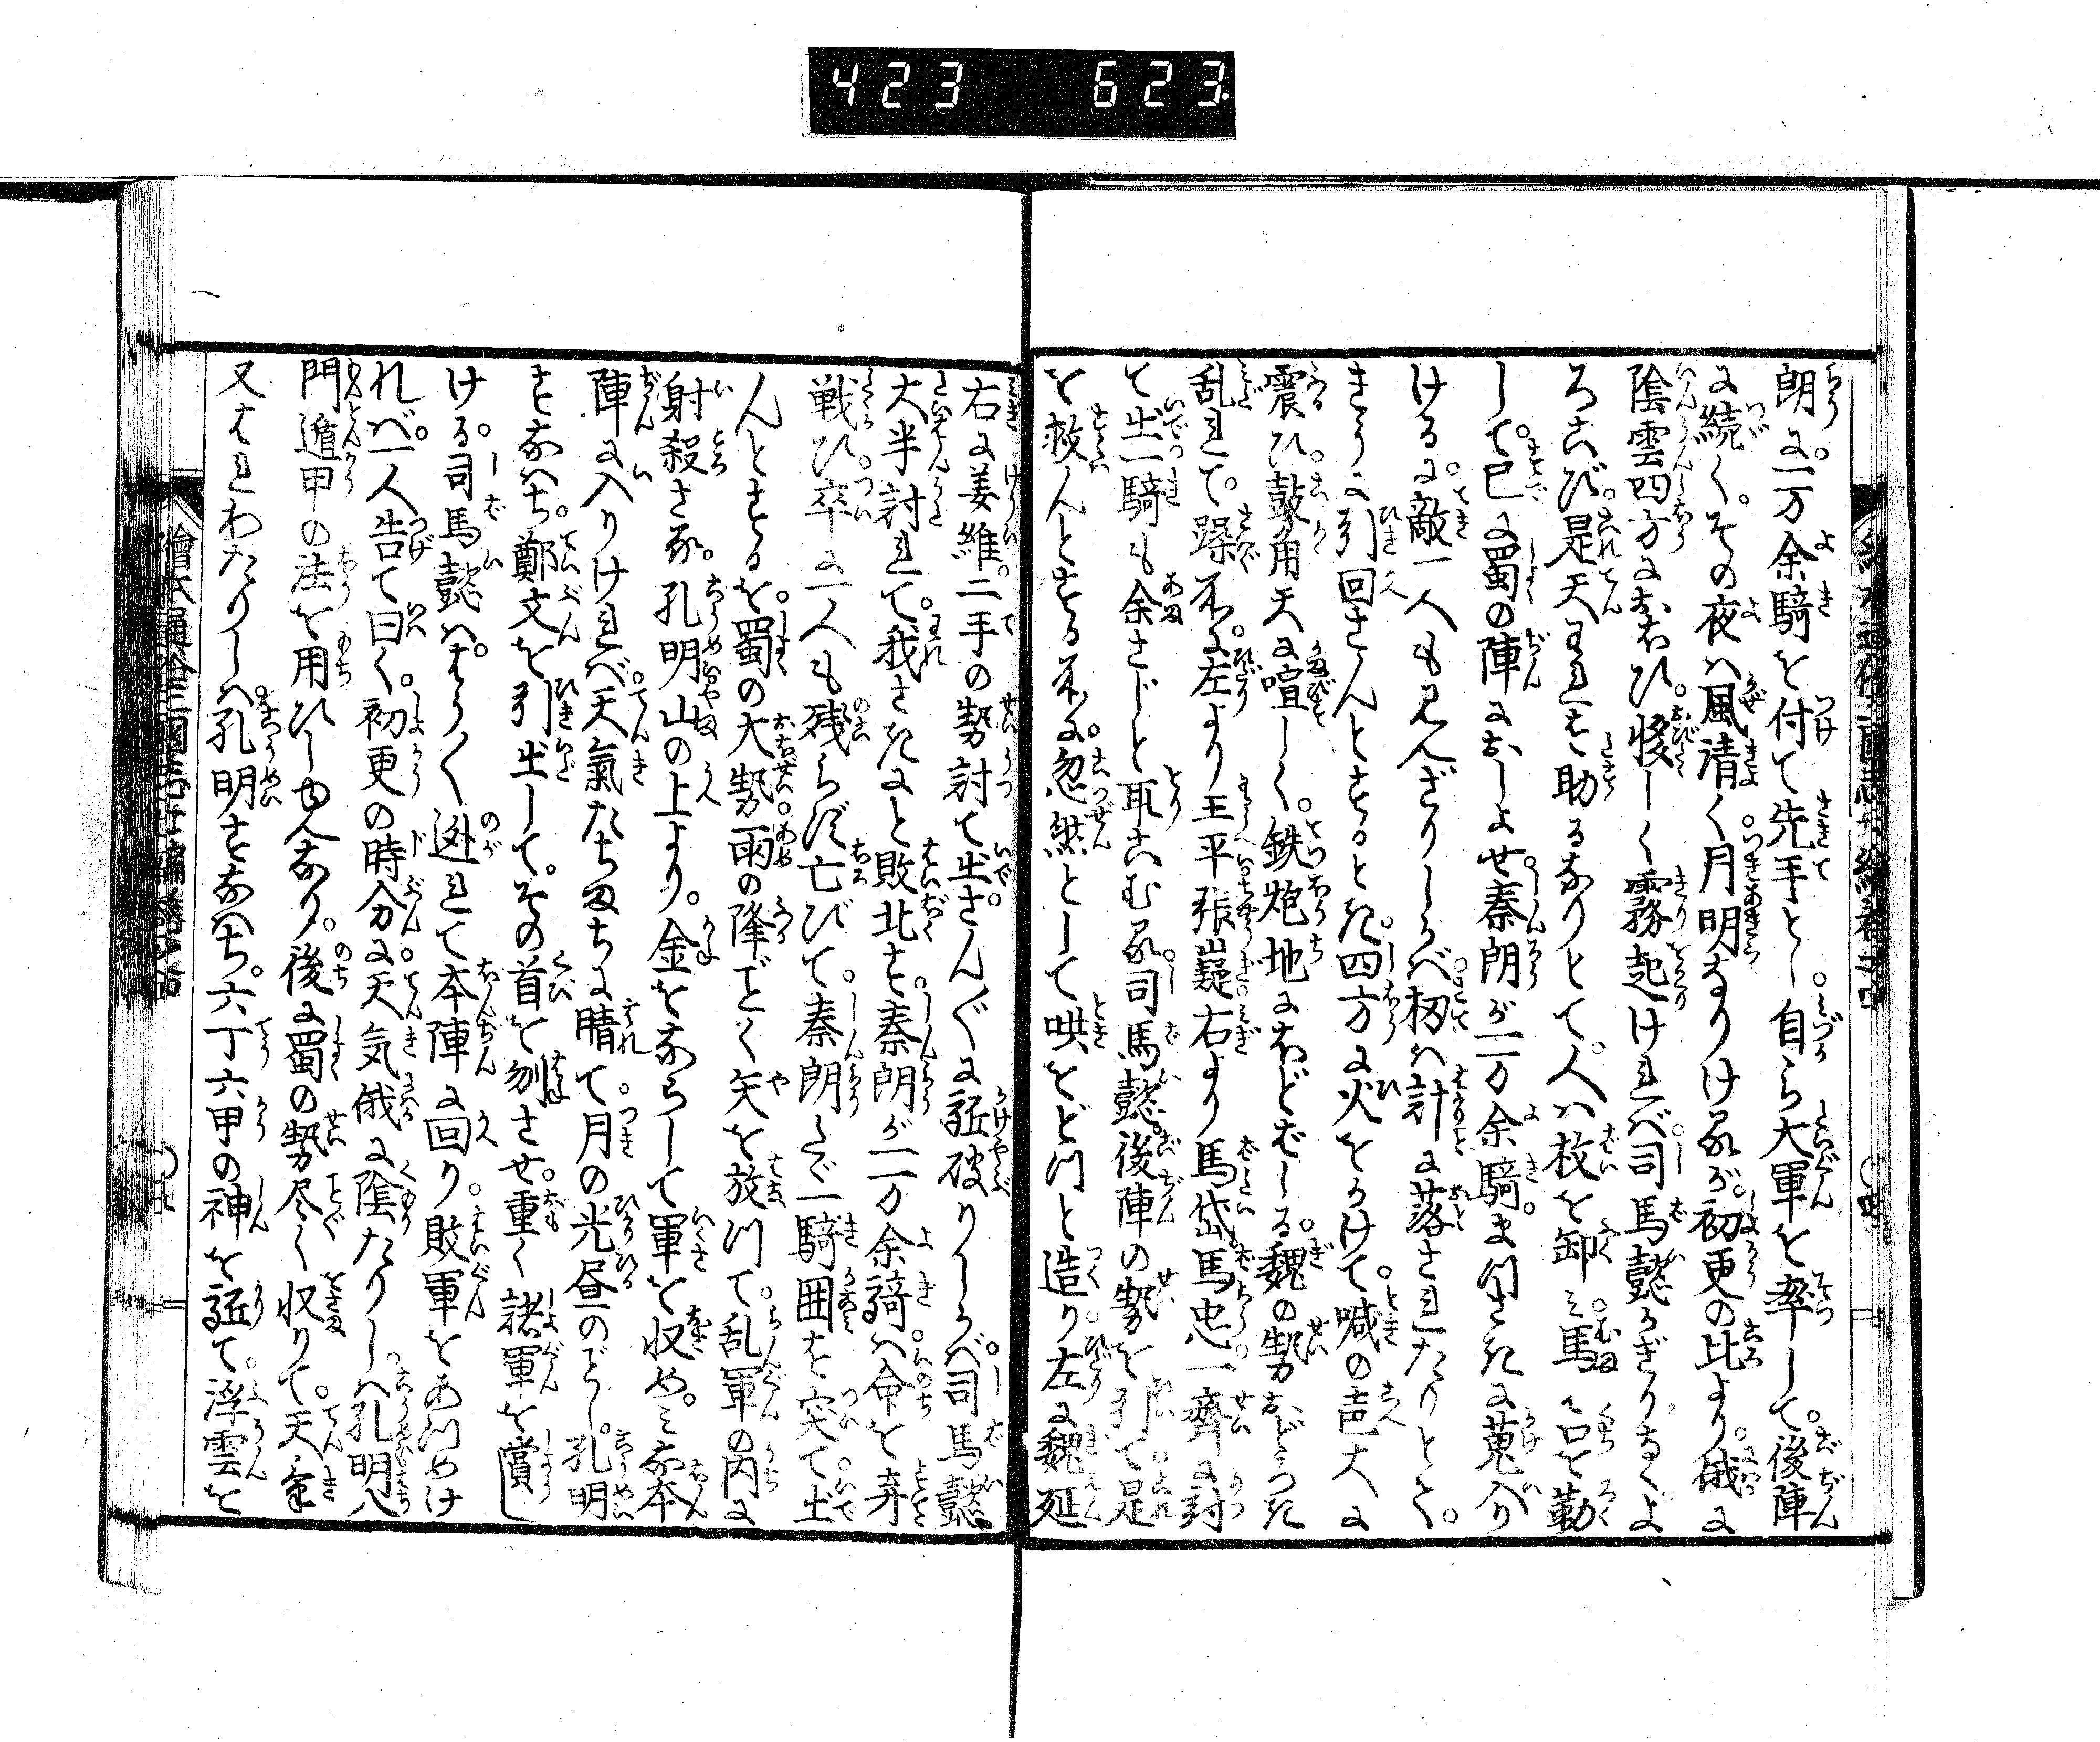 423 623
朗に一万余騎を付て先手とし自ら大軍を率して。後陣
に続く。その夜ハ風清く月明なりけるが。初更の比より。俄に
陰雲四方におほひ。夥しく霧起けれバ司馬懿かぎりなくよ
ろこび。是天われを助るなりとて。人ハ枚を卸ミ。馬ハ口を勒
して。已に蜀の陣におしよせ。秦朗が一万余騎まつさきに蒐入
ける に。敵一人も見へざりしかバ。扨ハ計に落されたりとて。
きうに引回さんとするとき。四方に火をかけて。喊の声大に
震ひ。鼓角天に喧しく。鉄炮地にほどばしる。魏の勢おどろき
乱れて。躁ぐ所に。左より王平張嶷。右より馬岱。馬忠。一齊に討
て出。一騎も余さじと取こむる。司馬懿。後陣の勢を引て。是
を救んとする所に。忽然として哄をどつと造り。左に魏延
右に姜維。二手の勢討て出。さんぐに駈破りしかバ。司馬懿
大半討れて。我さきにと敗北す。秦朗が一万余騎ハ命を弃
戦ひ。卒に一人も残らず亡びて。秦朗たゞ一騎囲を突て出
んとするを。蜀の大勢。雨の降ごとく矢を放つて。乱軍の内に
射殺さる。孔明山の上より。金をならして軍を収め。ミな本
陣に入りけれバ。天氣たちまちに晴て。月の光昼のごとし。孔明
すなハち。鄭文を引出して。その首を刎させ。重く諸軍を賞し
ける。司馬懿ハ。やうく遁れて本陣に回り。敗軍をあつめけ
れバ。一人告て曰く。初更の時分に。天気俄に陰たりしハ。孔明八
門遁甲の法を用ひしゆへなり。後に蜀の勢尽く収りて。天氣
又はれわたりしハ。孔明すなハち。六丁六甲の神を駈て。浮雲を